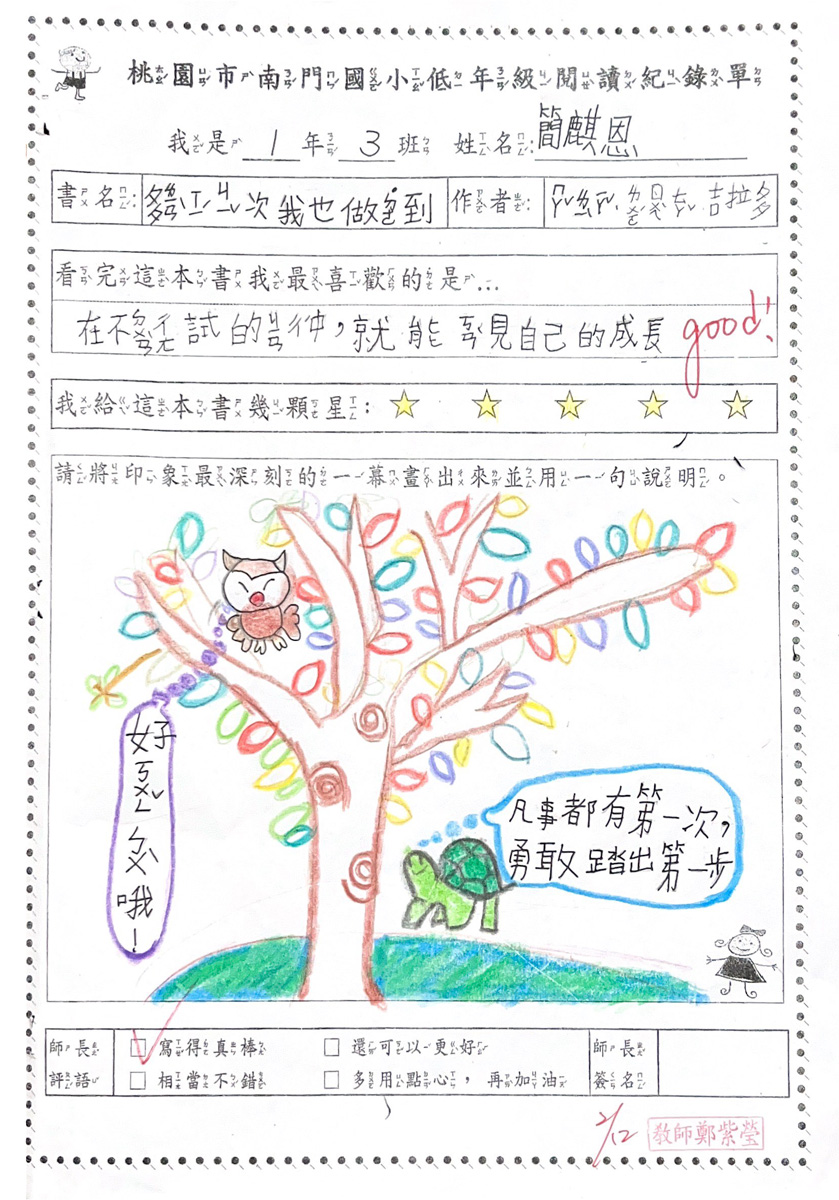 桃園市南門國小低年級閱讀紀錄單
我是 1 年 3 班 姓名:簡麒恩
書名: 多ㄒㄧˇㄐㄧˇ次我也做ㄉㄜˊ到 作者: 吉拉多
看完這本書我最喜歡的是...
在不ㄉㄨㄢˋ試的 ,就能ㄈㄚ見自己的成長 good!
我給這本書幾顆星: ☆ ☆ ☆ ☆ ☆
請將印象最深刻的一幕畫出來並用一句說明。
好ㄎㄨㄥˇㄅㄨˋ哦!
凡事都有第一次,
勇敢踏出第一步
師長評語 □寫得真棒 □還可以更好 師長簽名
□相當不錯 □多用點心,再加油
2/12 教師鄭紫瑩